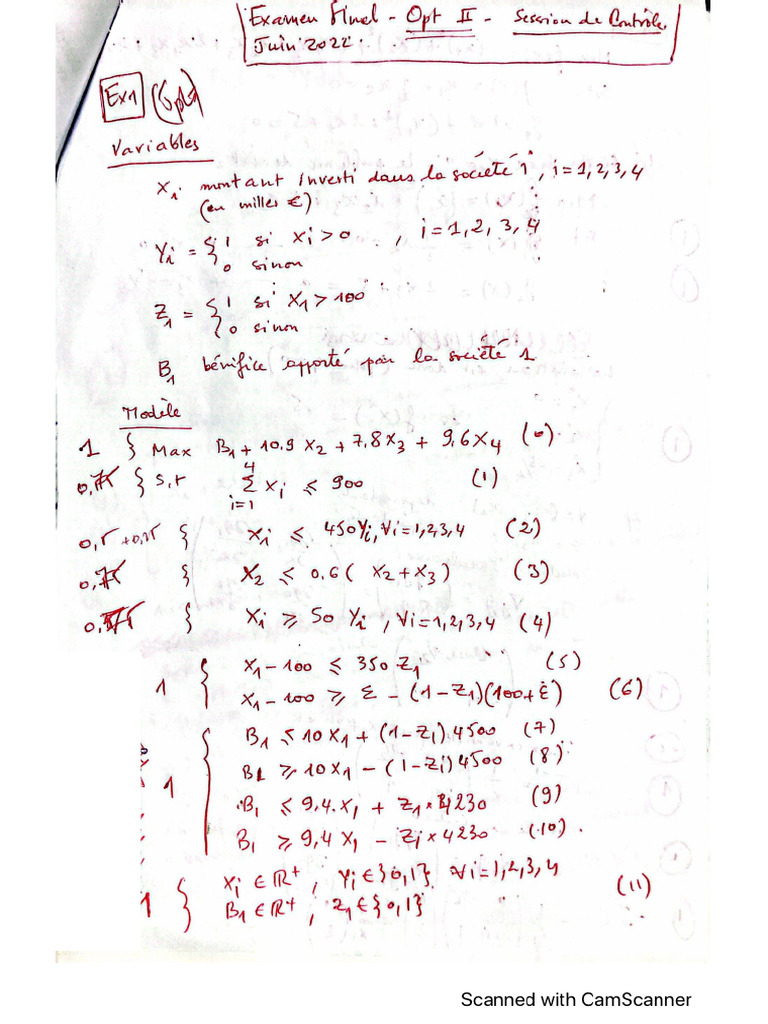 Examen Final - Opt II - Session de Contrôle
Juin 2022.
Ex1 (6pts)
Variables
Xi montant investi dans la société i, i=1,2,3,4
(en milles €)
Yi = { 1 si Xi>0 , i=1,2,3,4
0 sinon
Z1 = { 1 si X1>100
0 sinon
B1 bénifice apporté par la société 1
Modèle
1 } Max B1 + 10.9 X2 + 7,8 X3 + 9,6 X4 (0)
0,75 } S.t Σ(i=1..4) Xi ≤ 900 (1)
0,5+0,25 } Xi ≤ 450 Yi, ∀i=1,2,3,4 (2)
0,75 } X2 ≤ 0.6 (X2+X3) (3)
Xi ≥ 50 Yi, ∀i=1,2,3,4 (4)
X1-100 ≤ 350 Z1 (5)
1 { X1-100 ≥ Ɛ - (1-Z1)(100+Ɛ) (6)
B1 ≤ 10X1 + (1-Z1).4500 (7)
B1 ≥ 10X1 - (1-Z1)4500 (8)
1 { B1 ≤ 9,4.X1 + Z1 × 4230 (9)
B1 ≥ 9,4 X1 - Z1 × 4230 (10).
Xi ∈ ℝ+, Yi ∈ {0,1}, ∀i=1,2,3,4
1 { B1 ∈ ℝ+, Z1 ∈ {0,1} (11)
Scanned with CamScanner